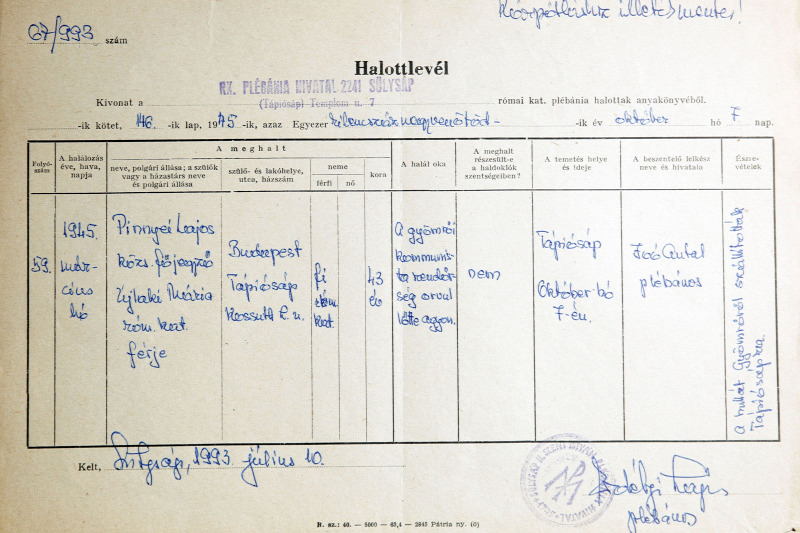 67/993 szám
illetékmentes!
Halottlevél
RK. PLÉBÁNIA HIVATAL 2241 SÜLYSÁP
Kivonat a (Tápiósáp) Templom u. 7 római kat. plébánia halottak anyakönyvéből.
-ik kötet, 146. -ik lap, 1945.-ik, azaz Egyezer -ik év október hó 7 nap.
Folyószám
A halálozás éve, hava, napja
A meghalt
neve, polgári állása; a szülők vagy a házastárs neve és polgári állása
szülő- és lakóhelye, utca, házszám
neme
férfi
nő
kora
A halál oka
A meghalt részesült-e a haldoklók szentségeiben?
A temetés helye és ideje
A beszentelő lelkész neve és hivatala
Észrevételek
59.
1945. március hó
Pinnyei Lajos
közs. főjegyző
Ujlaki Mária
róm. kat.
férje
Budapest
Tápiósáp
Kossuth L. u.
fi
róm.
kat.
43
év
A gyömrői
kommunis-
ta rendőr-
ség orvul
lőtte agyon.
nem
Tápiósáp
Október hó
7-én.
Joó Antal
plébános
A hullát Gyömrőről szállították
Tápiósápra.
Kelt, Sülysáp, 1993. július 10.
plébános
R. sz.: 40. — 5000 — 63,4 — 2845 Pátria ny. (6)